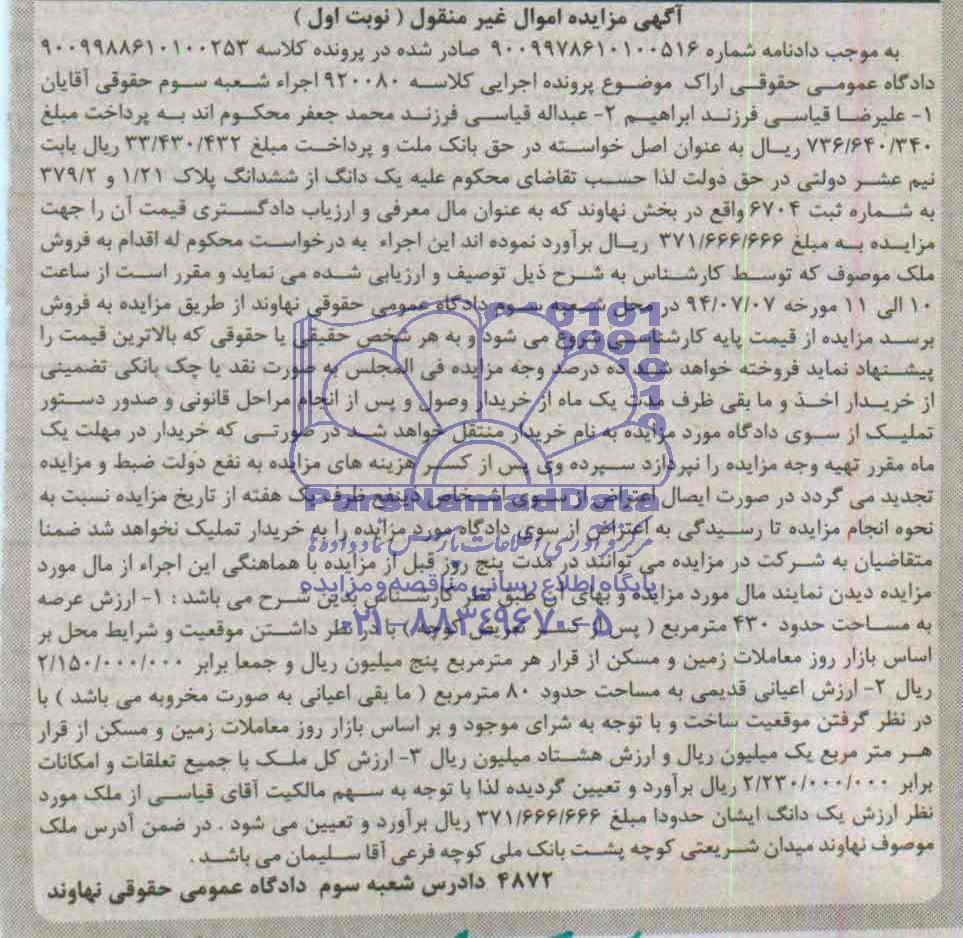 آگهی مزایده اموال غیر منقول ( نوبت اول )
به موجب دادنامه شماره ۹۰۰۹۹۷۸۶۱۰۱۰۰۵۱۶ صادر شده در پرونده کلاسه ۹۰۰۹۹۸۸۶۱۰۱۰۰۲۵۳
دادگاه عمومی حقوقی اراک موضوع پرونده اجرایی کلاسه ۹۲۰۰۸۰ اجراء شعبه سوم حقوقی آقایان
۱- علیرضا قیاسی فرزند ابراهیم ۲- عبداله قیاسی فرزند محمد جعفر محکوم اند به پرداخت مبلغ
۷۳۶/۶۴۰/۳۴۰ ریال به عنوان اصل خواسته در حق بانک ملت و پرداخت مبلغ ۳۳/۴۳۰/۴۳۲ ریال بابت
نیم عشر دولتی در حق دولت لذا حسب تقاضای محکوم علیه یک دانگ از ششدانگ پلاک ۱/۲۱ و ۳۷۹/۲
به شماره ثبت ۶۷۰۴ واقع در بخش نهاوند که به عنوان مال معرفی و ارزیاب دادگستری قیمت آن را جهت
مزایده به مبلغ ۳۷۱/۶۶۶/۶۶۶ ریال برآورد نموده اند این اجراء به درخواست محکوم له اقدام به فروش
ملک موصوف که توسط کارشناس به شرح ذیل توصیف و ارزیابی شده می نماید و مقرر است از ساعت
۱۰ الی ۱۱ مورخه ۹۴/۰۷/۰۷ در محل شعبه سوم دادگاه عمومی حقوقی نهاوند از طریق مزایده به فروش
برسد مزایده از قیمت پایه کارشناسی شروع می شود و به هر شخص حقیقی یا حقوقی که بالاترین قیمت را
پیشنهاد نماید فروخته خواهد شد ده درصد وجه مزایده فی المجلس به صورت نقد یا چک بانکی تضمینی
از خریدار اخذ و ما بقی ظرف مدت یک ماه از خریدار وصول و پس از انجام مراحل قانونی و صدور دستور
تملیک از سوی دادگاه مورد مزایده به نام خریدار منتقل خواهد شد در صورتی که خریدار در مهلت یک
ماه مقرر تهیه وجه مزایده را نپردازد سپرده وی پس از کسر هزینه های مزایده به نفع دولت ضبط و مزایده
تجدید می گردد در صورت ایصال اعتراض از سوی اشخاص ذینفع ظرف یک هفته از تاریخ مزایده نسبت به
نحوه انجام مزایده تا رسیدگی به اعتراض از سوی دادگاه مورد مزایده را به خریدار تملیک نخواهد شد ضمنا
متقاضیان به شرکت در مزایده می توانند در مدت پنج روز قبل از مزایده با هماهنگی این اجراء از مال مورد
مزایده دیدن نمایند مال مورد مزایده و بهای آن طبق نظر کارشناس بدین شرح می باشد : ۱- ارزش عرصه
به مساحت حدود ۴۳۰ مترمربع ( پس از کسر تعریض کوچه ) با در نظر داشتن موقعیت و شرایط محل بر
اساس بازار روز معاملات زمین و مسکن از قرار هر مترمربع پنج میلیون ریال و جمعا برابر ۲/۱۵۰/۰۰۰/۰۰۰
ریال ۲- ارزش اعیانی قدیمی به مساحت حدود ۸۰ مترمربع ( ما بقی اعیانی به صورت مخروبه می باشد ) با
در نظر گرفتن موقعیت ساخت و با توجه به شرای موجود و بر اساس بازار روز معاملات زمین و مسکن از قرار
هر متر مربع یک میلیون ریال و ارزش هشتاد میلیون ریال ۳- ارزش کل ملک با جمیع تعلقات و امکانات
برابر ۲/۲۳۰/۰۰۰/۰۰۰ ریال برآورد و تعیین گردیده لذا با توجه به سهم مالکیت آقای قیاسی از ملک مورد
نظر ارزش یک دانگ ایشان حدودا مبلغ ۳۷۱/۶۶۶/۶۶۶ ریال برآورد و تعیین می شود . در ضمن آدرس ملک
موصوف نهاوند میدان شریعتی کوچه پشت بانک ملی کوچه فرعی آقا سلیمان می باشد .
۴۸۷۲ دادرس شعبه سوم دادگاه عمومی حقوقی نهاوند
ParsNamadData
مرکز فرآوری اطلاعات پارس نماد داده ها
پایگاه اطلاع رسانی مناقصه و مزایده
۰۲۱-۸۸۳۴۹۶۷۰-۵